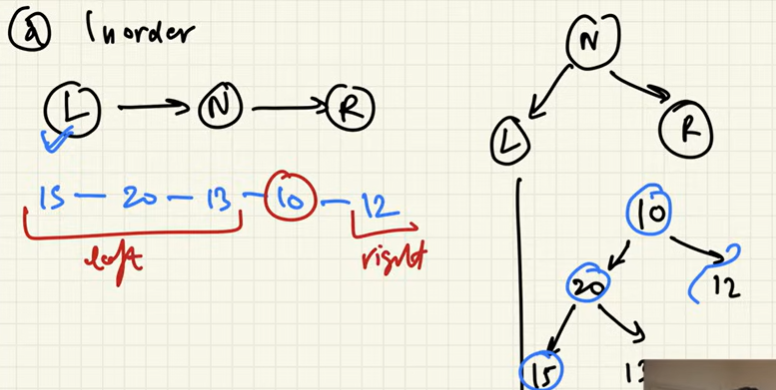 (a) Inorder
L → N → R
15 — 20 — 13 — 10 — 12
left right
N
L R
10
20 12
15